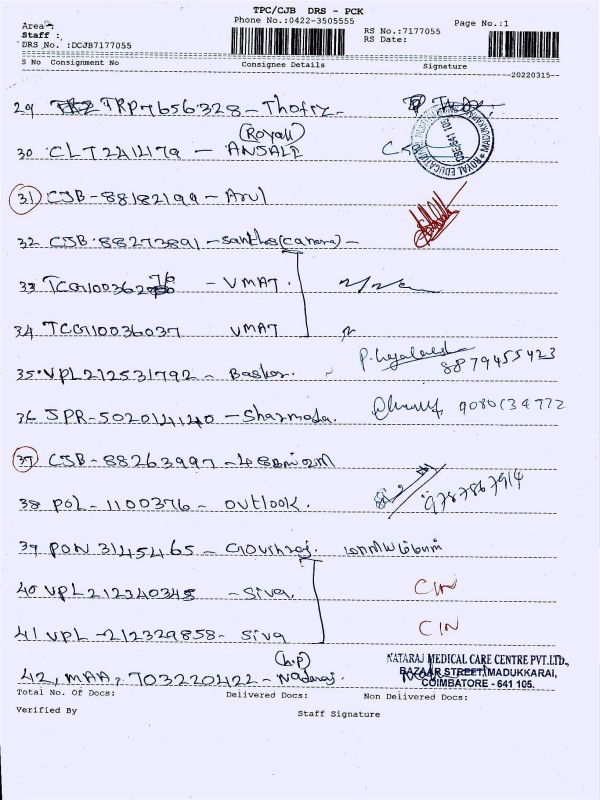 TPC/CJB DRS - PCK
Area :
Phone No.:0422-3505555
Page No.:1
Staff :
RS No.:7177055
DRS No. :DCJB7177055
RS Date:
S No Consignment No Consignee Details Signature
20220315
29 TRP7656328 - Thofiz
(Royal)
30 CLT2414179 - ANJALI
ROYAL EDUCATIONAL
31 CJB - 88182199 - Arul
32 CJB 88273891 - Santhos (Canara) -
33 TCG110036276 - VMAT.
34 TCG110036037 VMAT
35 VPL212531792 - Baskar.
8879455423
36 JPR-502014140 - Sharmada.
9080634772
37 CJB - 88263997 -
38 POL - 1100376 - Outlook.
9787867914
39 PON 3145465 -
40 VPL212340345 - Siva
CIN
41 VPL - 212329858 - Siva
CIN
(h.p)
42, MAA, 703220422 - Nadaraj.
NATARAJ MEDICAL CARE CENTRE PVT.LTD.,
BAZAAR STREET, MADUKKARAI,
COIMBATORE - 641 105.
Total No. Of Docs: Delivered Docs: Non Delivered Docs:
Verified By Staff Signature